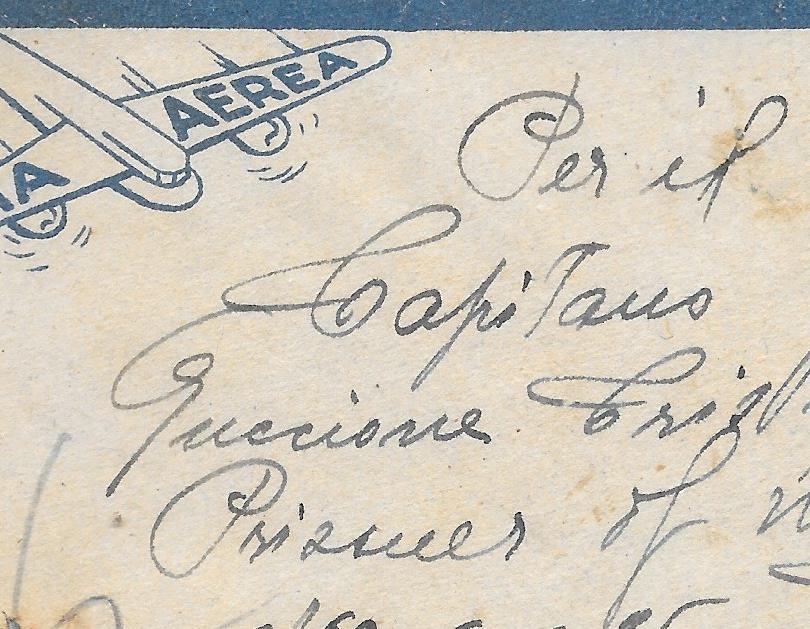 AEREA
Per il
Capitano
Guccione
Prisoner of